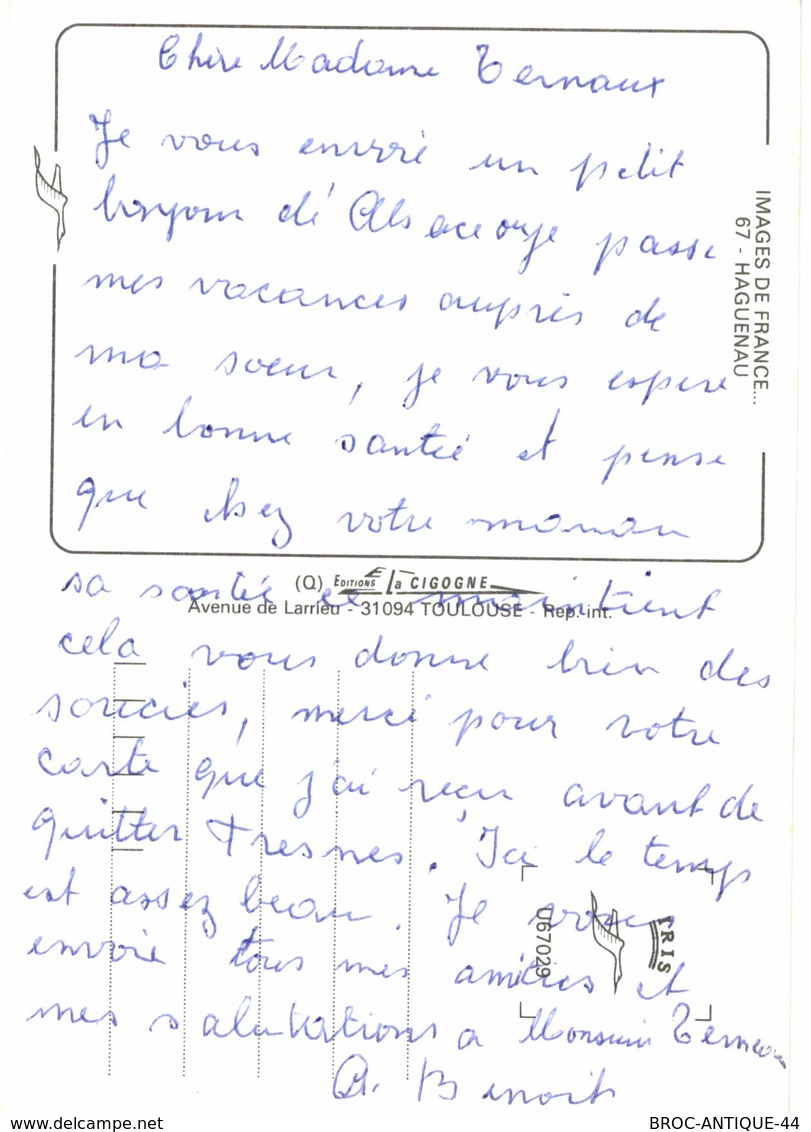 Chère Madame Ternaux
Je vous envoie un petit
bonjour de Alsace ou je passe
mes vacances auprès de
ma soeur, je vous espere
en bonne santée et pense
que chez votre maman
sa santée ce maintient
cela vous donne bien des
soucies, merci pour votre
carte que j'ai reçu avant de
quitter Fresnes. Ici le temps
est assez beau. Je vous
envoie tous mes amitiés et
mes salutations a Monsieur Ternaux
A. Benoit
IMAGES DE FRANCE...
67 - HAGUENAU
(Q) EDITIONS La CIGOGNE
Avenue de Larrieu - 31094 TOULOUSE - Rep. int.
U67029
IRIS
BROC-ANTIQUE-44